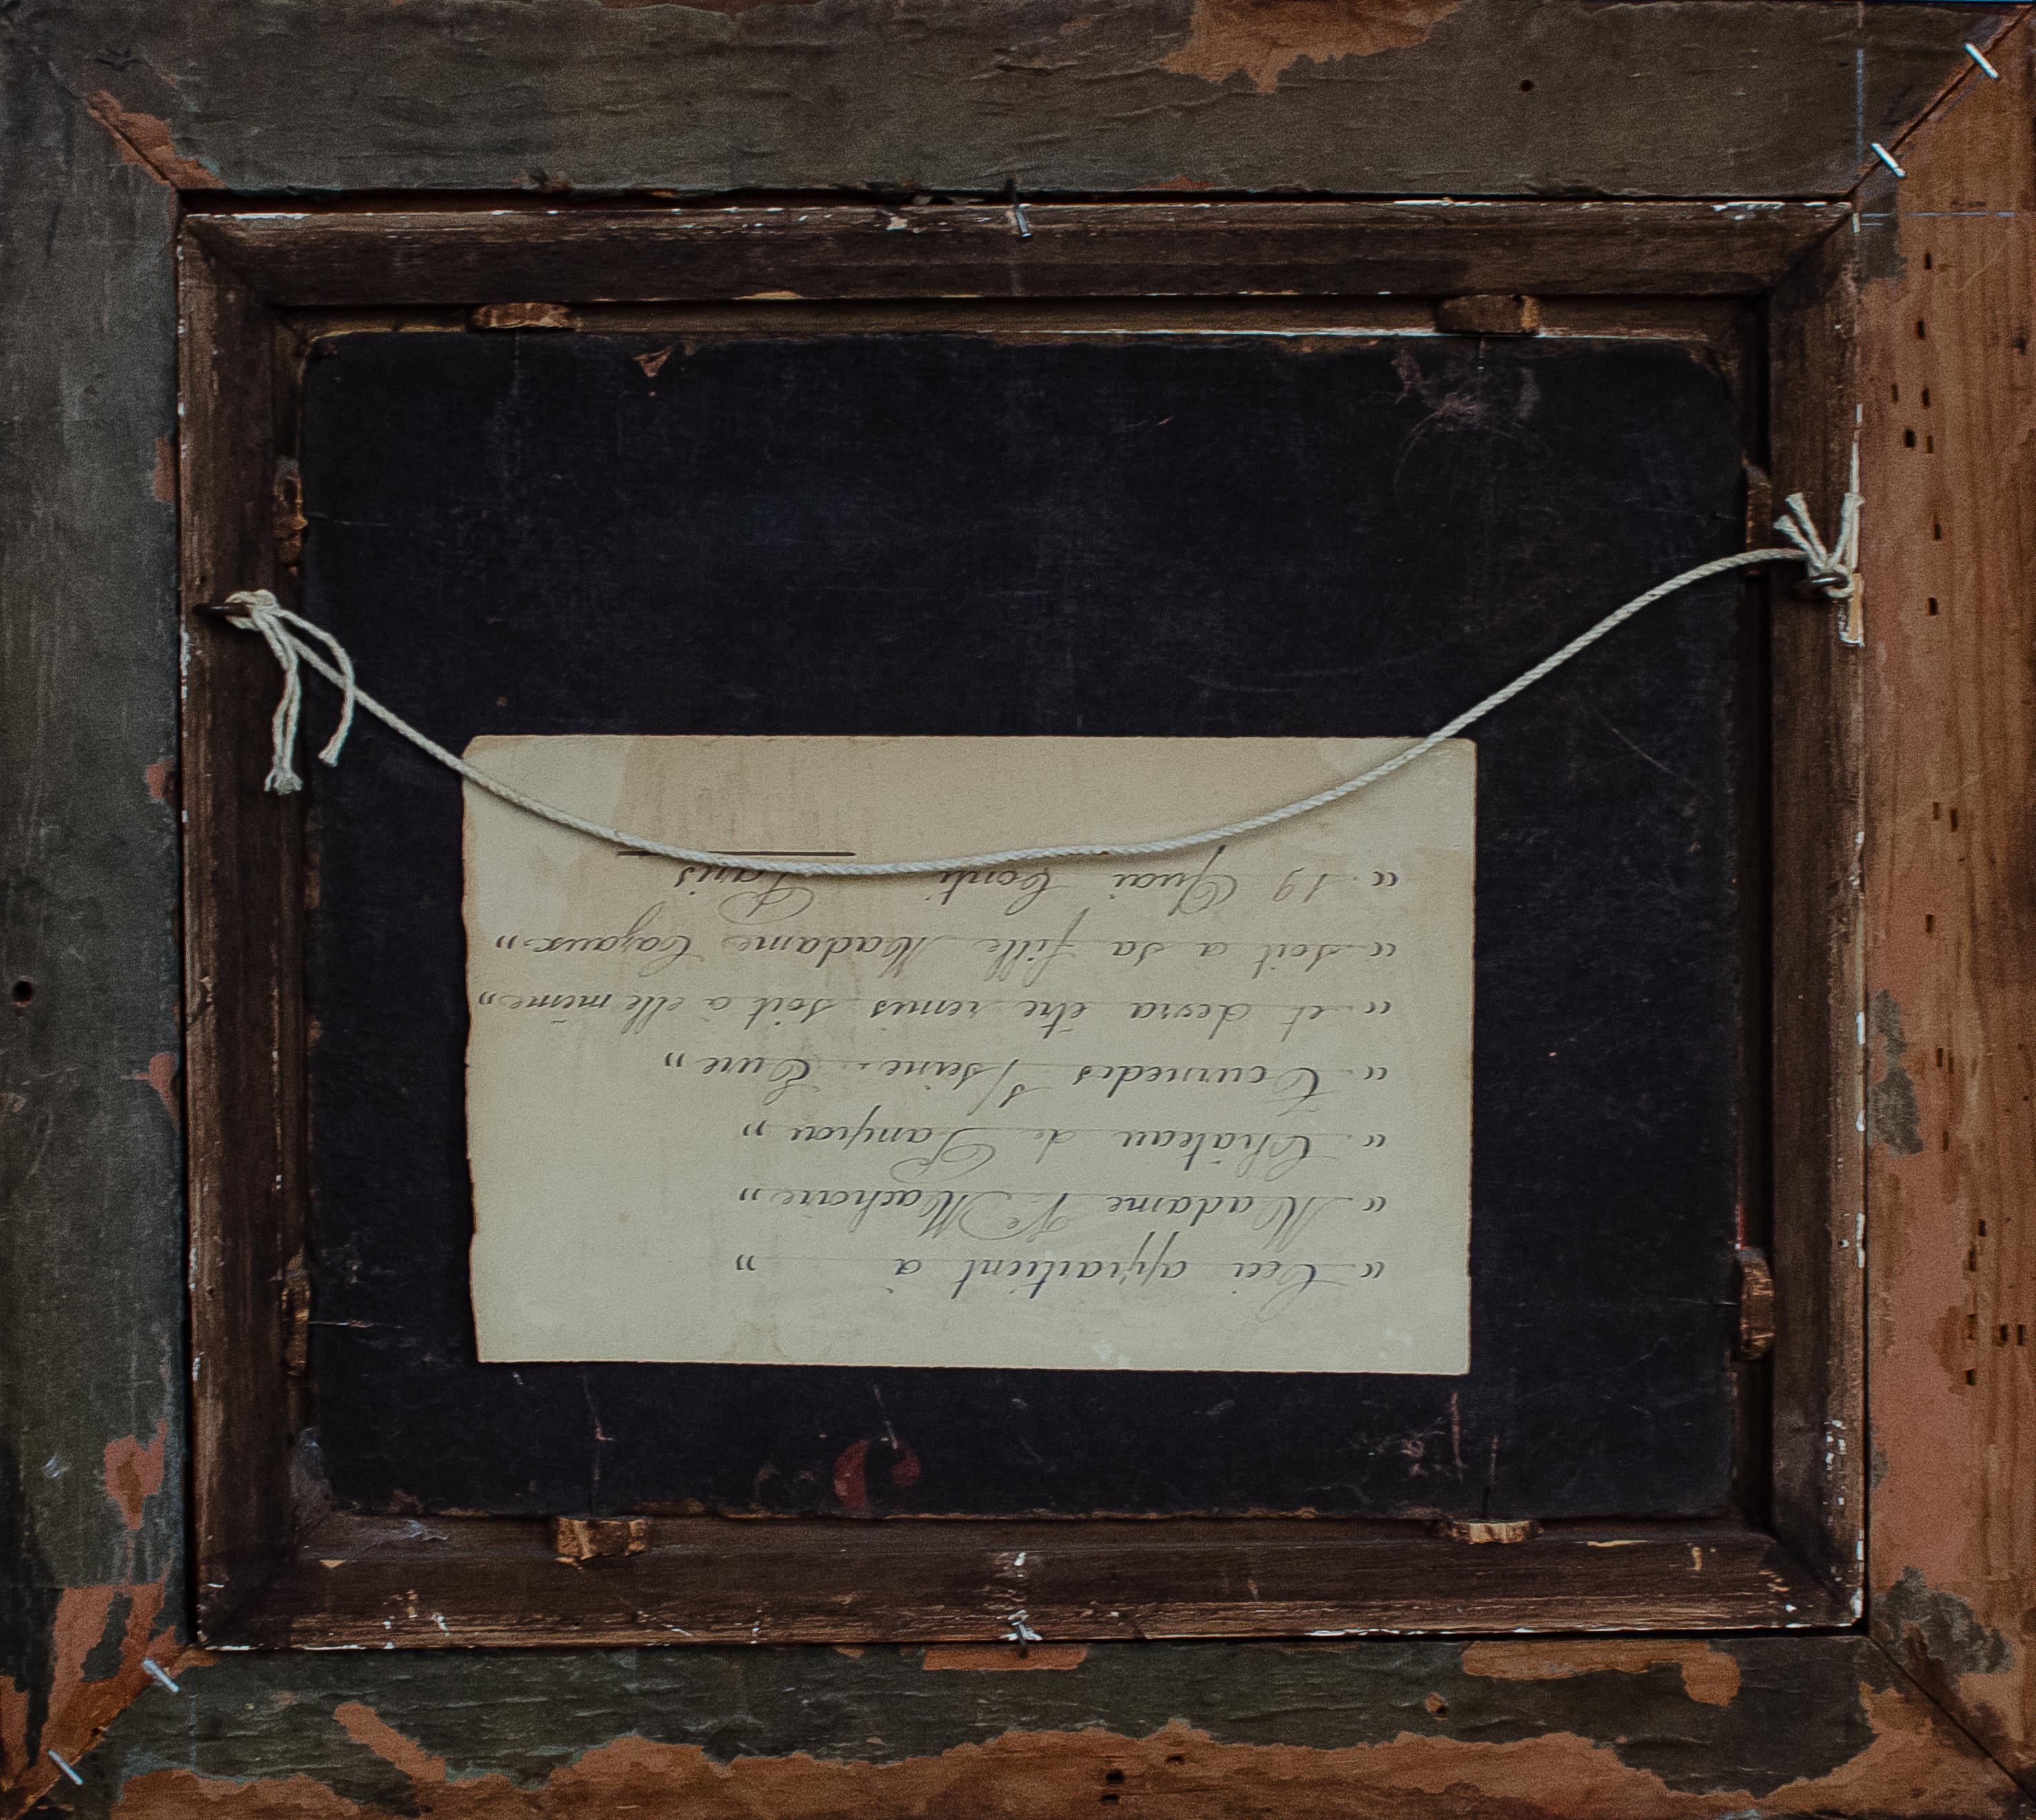 « Ceci appartient à »
« Madame Vᵉ Machore »
« Château de »
« Tournedos s/Seine. Eure »
« et devra être remis soit à elle même »
« soit a sa fille Madame Cazaux. »
« 19 Quai Conti Paris